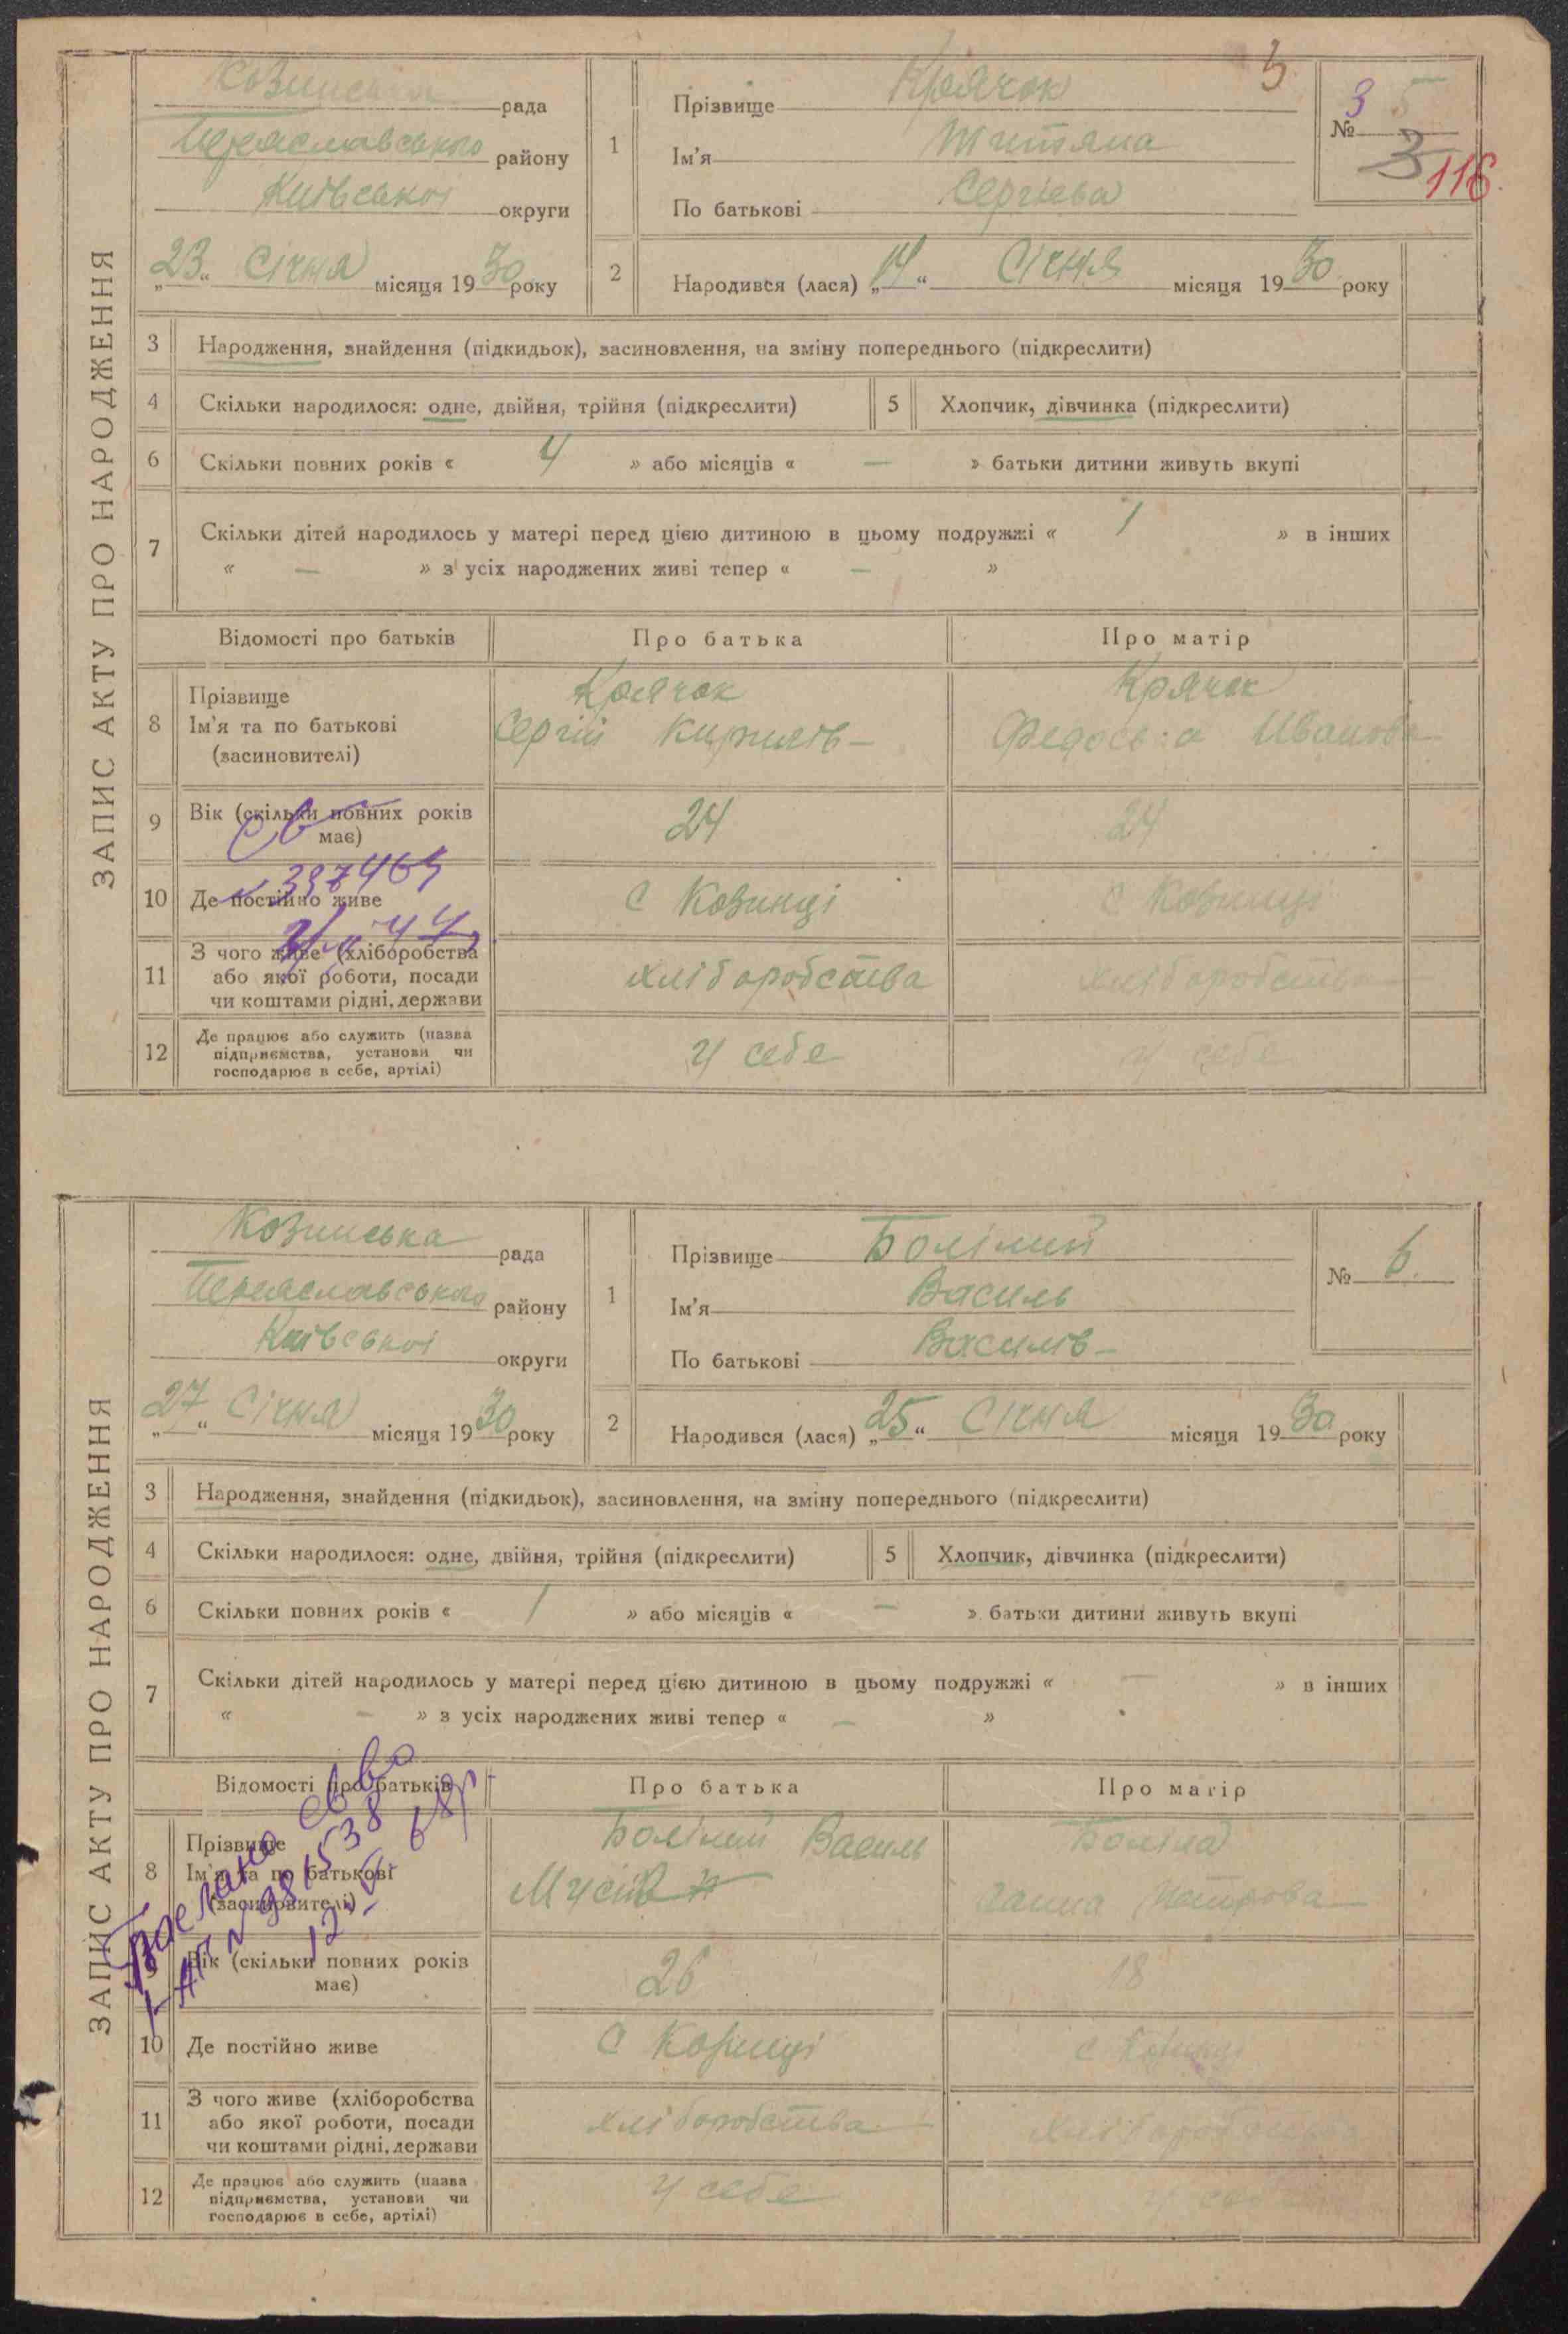 ЗАПИС АКТУ ПРО НАРОДЖЕННЯ
Козинська рада
Переяславського району
Київської округи
„23“ Січня місяця 1930 року
1
Прізвище Крячок
Ім'я Титяна
По батькові Сергієва
3
№ 3 5
3
116.
2
Народився (лася) „14“ Січня місяця 1930 року
3 Народження, знайдення (підкидьок), засиновлення, на зміну попереднього (підкреслити)
4 Скільки народилося: одне, двійня, трійня (підкреслити) 5 Хлопчик, дівчинка (підкреслити)
6 Скільки повних років « 4 » або місяців « — » батьки дитини живуть вкупі
7 Скільки дітей народилось у матері перед цією дитиною в цьому подружжі « 1 » в інших
« — » з усіх народжених живі тепер « — »
Відомості про батьків Про батька Про матір
8 Прізвище
Ім'я та по батькові
(засиновителі)
Крячок
Сергій Кирилів –
Крячок
Федось а Иванова
9 Вік (скільки повних років
має)
24 24
св
387469
10 Де постійно живе с Козинці с Козинці
44
11 З чого живе (хліборобства
або якої роботи, посади
чи коштами рідні, держави
хліборобства хліборобства
12 Де працює або служить (назва
підприємства, установи чи
господарює в себе, артілі)
У себе у себе
ЗАПИС АКТУ ПРО НАРОДЖЕННЯ
Козинська рада
Переяславського району
Київської округи
„27“ Січня місяця 1930 року
1
Прізвище Болілий
Ім'я Василь
По батькові Василів –
№ 6.
2
Народився (лася) „25“ Січня місяця 1930 року
3 Народження, знайдення (підкидьок), засиновлення, на зміну попереднього (підкреслити)
4 Скільки народилося: одне, двійня, трійня (підкреслити) 5 Хлопчик, дівчинка (підкреслити)
6 Скільки повних років « 1 » або місяців « — » батьки дитини живуть вкупі
7 Скільки дітей народилось у матері перед цією дитиною в цьому подружжі « — » в інших
« — » з усіх народжених живі тепер « — »
Відомості про батьків Про батька Про матір
8 Прізвище
Ім'я та по батькові
(засиновителі)
Болілий Василь
Мусів
Боліла
Ганна Петрова
св во
981538
68р
9 Вік (скільки повних років
має)
26 18
10 Де постійно живе с Козинці с Козинці
11 З чого живе (хліборобства
або якої роботи, посади
чи коштами рідні, держави
хліборобства хліборобства
12 Де працює або служить (назва
підприємства, установи чи
господарює в себе, артілі)
У себе у себе